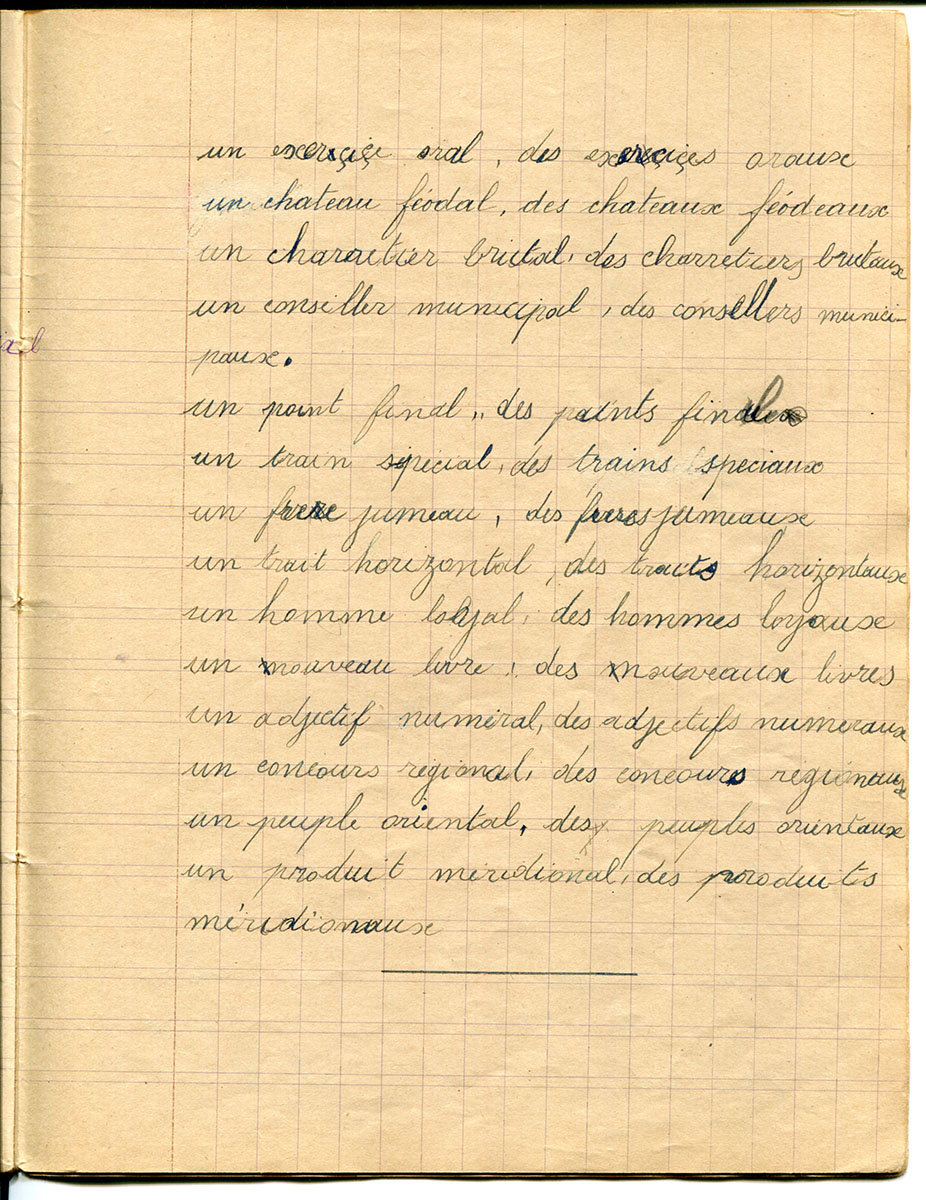 un exerçiçe oral, des exerçiçes oraux
un chateau féodal, des chateaux féodeaux
un charretier brutal, des charretiers brutaux
un conseiller municipal, des consellers munici-
al
paux.
un point final, des points finals
un train spécial, des trains speciaux
un frere jumeau, des freres jumeaux
un trait horizontal, des traits horizontaux
un homme loyal, des hommes loyaux
un nouveau livre, des nouveaux livres
un adjectif numéral, des adjectifs numeraux
un concours regional, des concours regionaux
un peuple oriental, des peuples orientaux
un produit méridional, des produits
méridionaux